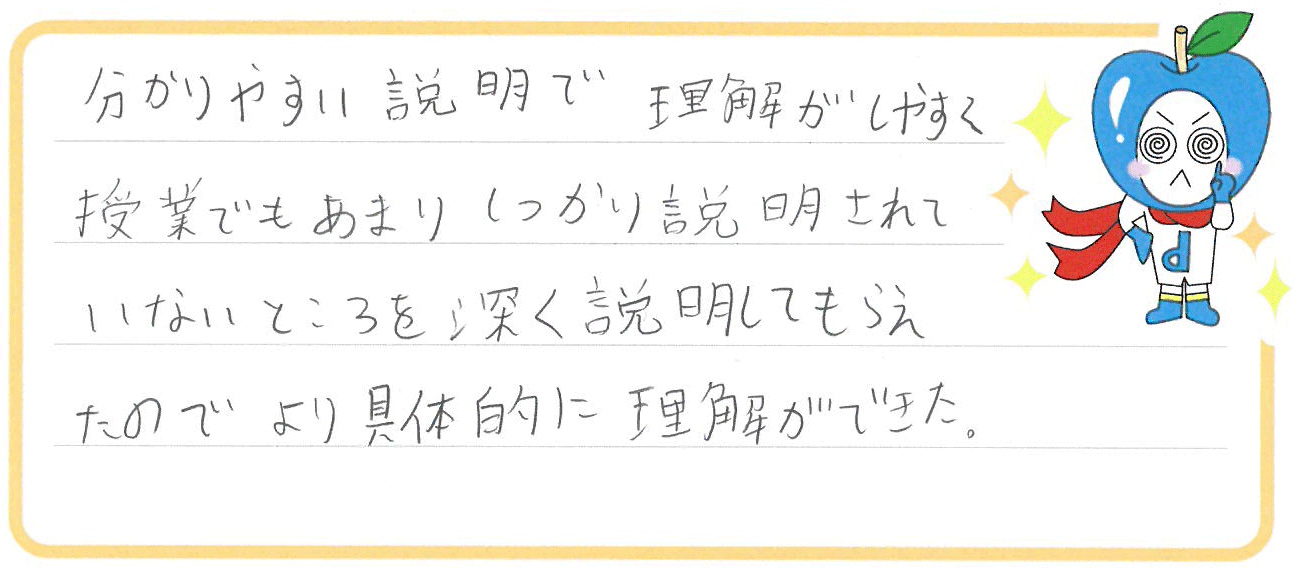 分かりやすい説明で 理解がしやすく
授業でもあまりしっかり説明されて
いないところを深く説明してもらえ
たのでより具体的に理解ができた。
d